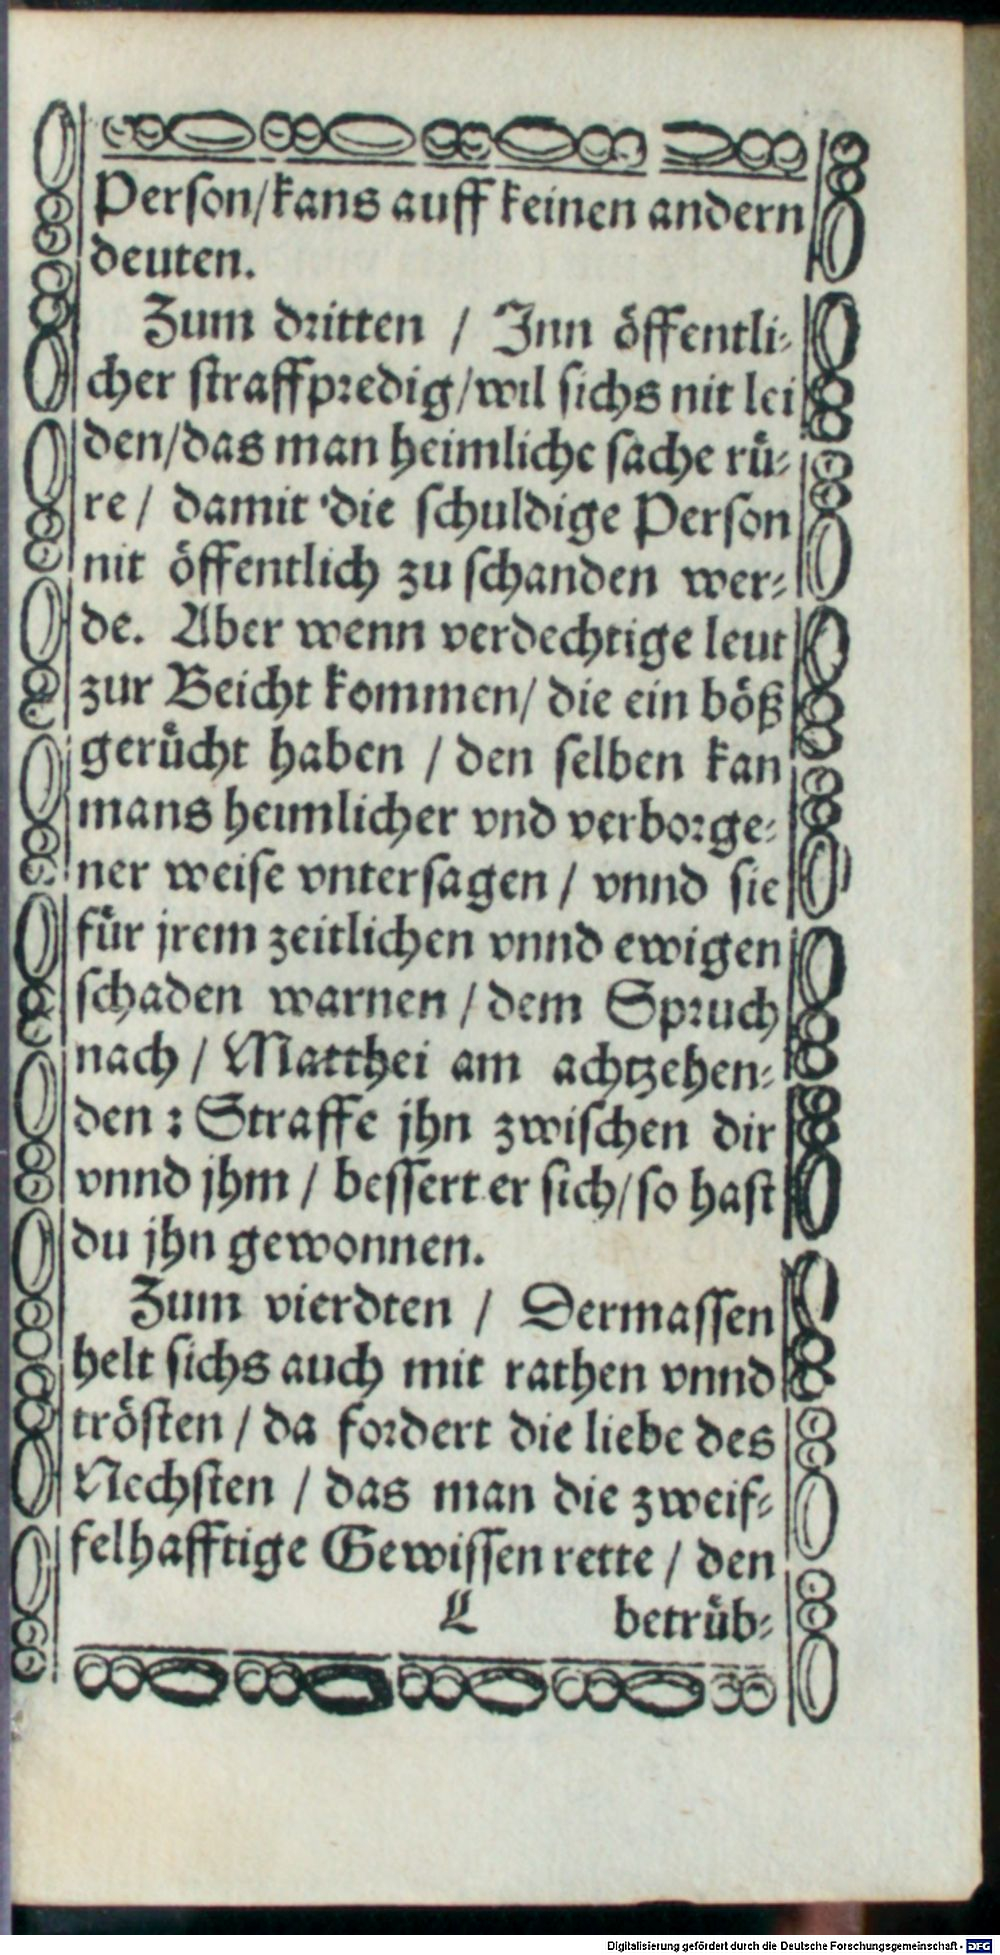 Person/kans auff keinen andern
deuten.
Zum dritten / Inn öffentli-
cher straffpredig/wil sichs nit lei
den/das man heimliche sache rü-
re / damit die schuldige Person
nit öffentlich zu schanden wer-
de. Aber wenn verdechtige leut
zur Beicht kommen/ die ein böß
gerücht haben / den selben kan
mans heimlicher vnd verborge-
ner weise vntersagen / vnnd sie
für jrem zeitlichen vnnd ewigen
schaden warnen / dem Spruch
nach / Matthei am achtzehen-
den : Straffe jhn zwischen dir
vnnd jhm / bessert er sich/ so hast
du jhn gewonnen.
Zum vierdten / Dermassen
helt sichs auch mit rathen vnnd
trösten / da fordert die liebe des
Nechsten / das man die zweif-
felhafftige Gewissen rette / den
L betrüb-
Digitalisierung gefördert durch die Deutsche Forschungsgemeinschaft - DFG